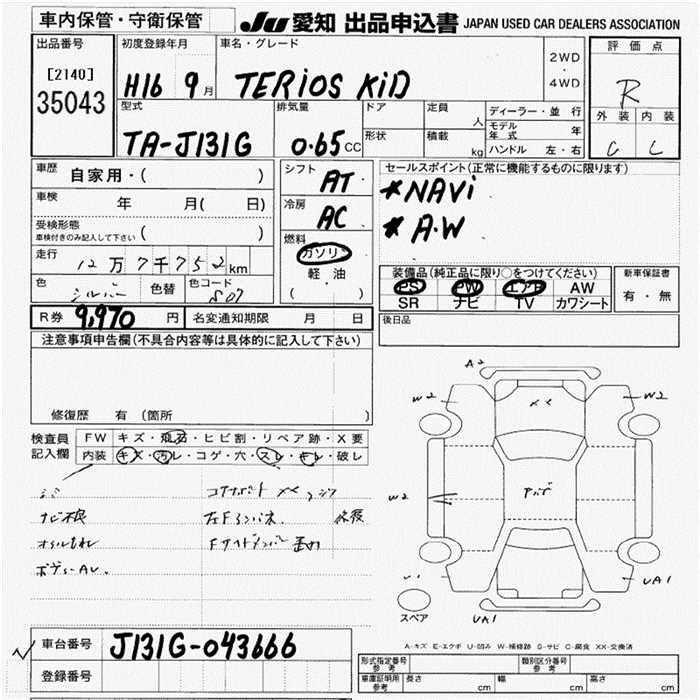 車内保管・守衛保管
JU 愛知 出品申込書 JAPAN USED CAR DEALERS ASSOCIATION
出品番号
[2140]
35043
初度登録年月
H16 9月
車名・グレード
TERIOS KID
2WD
・
4WD
評価点
R
外装 内装
C C
型式
TA-J131G
排気量
0.65CC
ドア
形状
定員 人
積載 kg
ディーラー・並行
モデル年式 年
ハンドル 左・右
車歴
自家用・( )
車検
年 月( 日)
受検形態
車検付きのみ記入して下さい( )
走行
12万7千752km
色
シルバー
色替
色コード
S07
シフト
AT
冷房
AC
燃料
ガソリン
軽油
( )
セールスポイント(正常に機能するものに限ります)
*NAVi
*A.W
装備品(純正品に限り○をつけてください)
PS PW エアB AW
SR ナビ TV カワシート
新車保証書
有・無
後日品
R券 9,970円
名変通知期限 月 日
注意事項申告欄(不具合内容等は具体的に記入して下さい)
修復歴 有(箇所 )
検査員記入欄
FW キズ・飛石・ヒビ割・リペア跡・X要
内装 キズ・汚レ・コゲ・穴・スレ・キレ・破レ
A2
W2
W2
W2
UA1
UA1
スペア
A-キズ E-エクボ U-凹み W-補修跡 S-サビ C-腐食 XX-交換済
車台番号
J131G-043666
登録番号
型式指定番号 参考
類別区分番号 参考
車庫証明用 参考
長さ cm
幅 cm
高さ cm